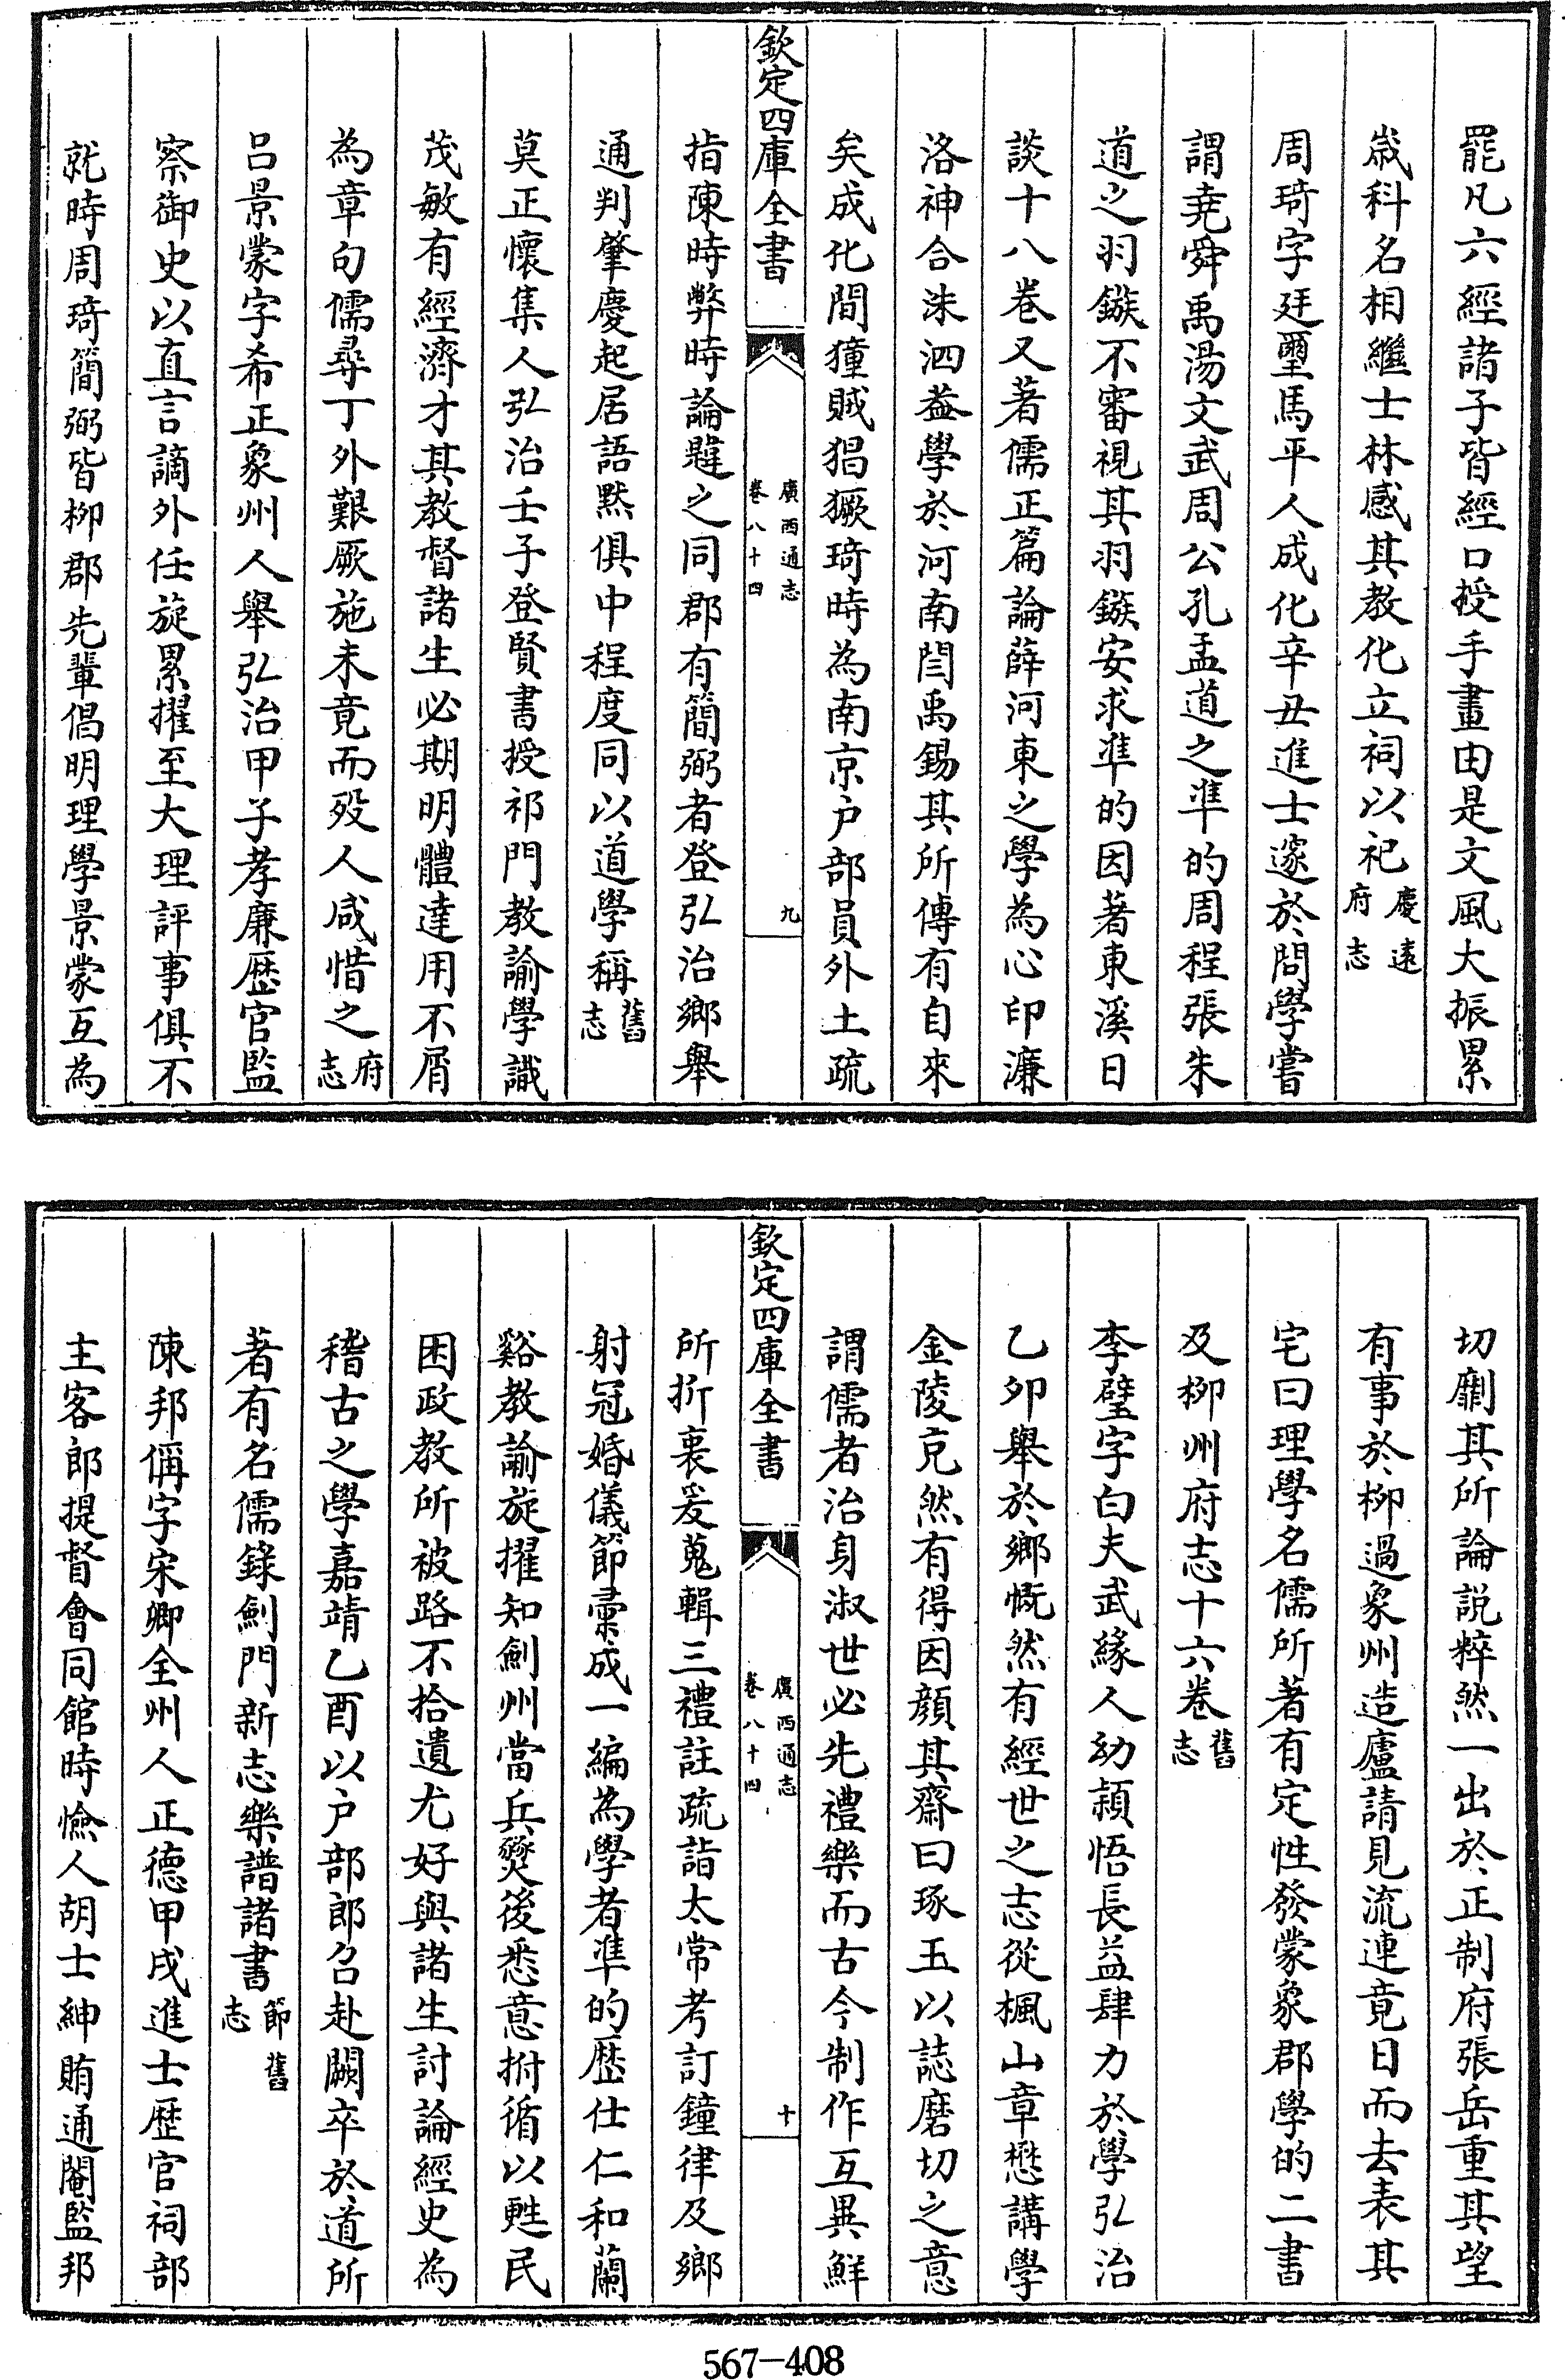 罷凡六經諸子皆經口授手畫由是文風大振累
嵗科名相繼士林感其教化立祠以祀慶遠府志
周琦字廷璽馬平人成化辛丑進士邃於問學嘗
謂堯舜禹湯文武周公孔孟道之凖的周程張朱
道之羽鏃不審視其羽鏃安求凖的因著東溪日
談十八卷又著儒正篇論薛河東之學為心印濂
洛神合洙泗葢學於河南閆禹錫其所傳有自來
矣成化間獞賊猖獗琦時為南京户部員外土疏
欽定四庫全書
廣西通志
卷八十四
九
指陳時弊時論韙之同郡有簡弼者登弘治鄉舉
通判肇慶起居語黙俱中程度同以道學稱舊志
莫正懷集人弘治壬子登賢書授祁門教諭學識
茂敏有經濟才其教督諸生必期明體達用不屑
為章句儒尋丁外艱厥施未竟而殁人咸惜之府志
吕景蒙字希正象州人舉弘治甲子孝廉歴官監
察御史以直言謫外任旋累擢至大理評事俱不
就時周琦簡弼皆柳郡先輩倡明理學景蒙互為
切劘其所論説粹然一出於正制府張岳重其望
有事於柳過象州造廬請見流連竟日而去表其
宅曰理學名儒所著有定性發蒙象郡學的二書
及柳州府志十六卷舊志
李璧字白夫武緣人幼頴悟長益肆力於學弘治
乙卯舉於鄉慨然有經世之志從楓山章懋講學
金陵克然有得因顔其齋曰琢玉以誌磨切之意
謂儒者治身淑世必先禮樂而古今制作互異鮮
欽定四庫全書
廣西通志
卷八十四
十
所折衷爰蒐輯三禮註疏詣太常考訂鐘律及鄉
射冠婚儀節彚成一編為學者凖的歴仕仁和蘭
谿教諭旋擢知劍州當兵燹後悉意拊循以甦民
困政教所被路不拾遺尤好與諸生討論經史為
稽古之學嘉靖乙酉以户部郎召赴闕卒於道所
著有名儒錄劍門新志樂譜諸書節舊志
陳邦偁字宋卿全州人正德甲戌進士歴官祠部
主客郎提督會同館時憸人胡士紳賄通閹監邦
567-408